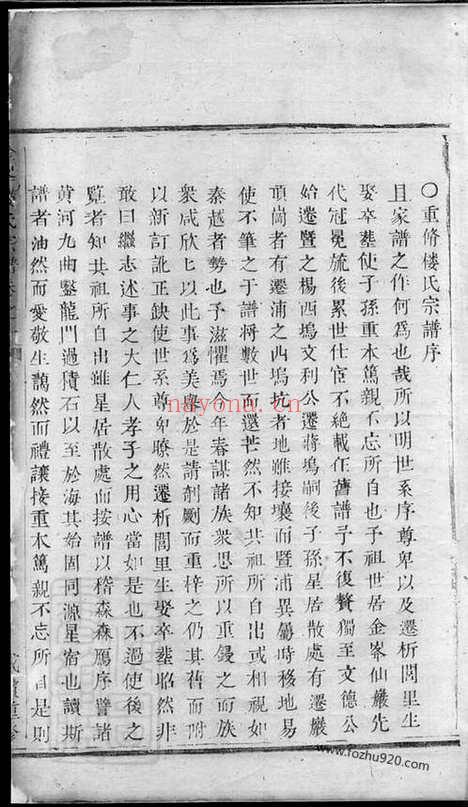 〇重修楼氏宗譜序
且家譜之作何為也哉所以明世系序尊卑以及遷析閭里生
娶卒塟使子孫重本篤親不忘所自也予祖世居金峯仙巖先
代冠冕旒後累世仕宦不絶載在舊譜予不復贅獨至文德公
始遷暨之楊西塢文利公遷蔣塢嗣後子孫星居散處有遷巖
頭崗者有遷浦之西塢坑者地雖接壤而暨浦異屬時移地易
使不筆之于譜將數世而還茫然不知其祖所自出或相視如
秦越者勢也予滋懼焉今年春謀諸族衆思所以重鋟之而族
衆咸欣匕以此事爲美舉於是請剞劂而重梓之仍其舊而附
以新訂訛正缺使世系尊卑瞭然遷析閭里生娶卒塟昭然非
敢曰繼志述事之大仁人孝子之用心當如是也不過使後之
覧者知其祖所自出雖星居散處而按譜以稽森森鴈序譬諸
黄河九曲鑿龍門過積石以至於海其始固同源星宿也讀斯
譜者油然而愛敬生藹然而禮讓接重本篤親不忘所自是則
氏宗譜
重修
nayona.cn
www.fozhu920.com